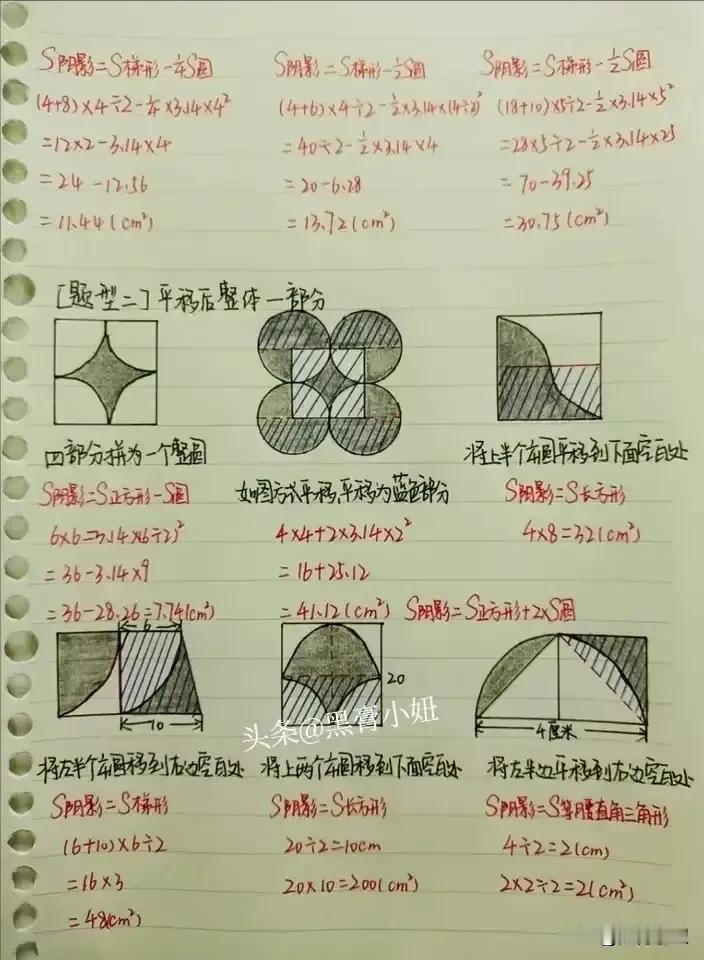 S阴影=S梯形-¼S圆
(4+8)×4÷2-¼×3.14×4²
=12×2-3.14×4
=24-12.56
=11.44(cm²)
S阴影=S梯形-½S圆
(4+6)×4÷2-½×3.14×(4÷2)²
=40÷2-½×3.14×4
=20-6.28
=13.72(cm²)
S阴影=S梯形-½S圆
(18+10)×5÷2-½×3.14×5²
=28×5÷2-½×3.14×25
=70-39.25
=30.75(cm²)
[题型二]平移后整体一部分
四部分拼为一个整圆
S阴影=S正方形-S圆
6×6=3.14×(6÷2)²
=36-3.14×9
=36-28.26=7.74(cm²)
如图方式平移,平移为蓝色部分
4×4+2×3.14×2²
=16+25.12
=41.12(cm²) S阴影=S正方形+2×S圆
将上半个扇圆平移到下面空白处
S阴影=S长方形
4×8=32(cm²)
6
10
将左半个扇圆移到右边空白处
S阴影=S梯形
(6+10)×6÷2
=16×3
=48(cm²)
20
将上两个扇圆移到下面空白处
S阴影=S长方形
20÷2=10cm
20×10=200(cm²)
4厘米
将左半边平移到右边空白处
S阴影=S等腰直角三角形
4÷2=2(cm)
2×2÷2=2(cm²)
头条@黑膏小妞